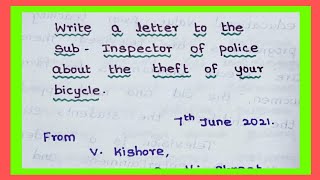 Write a letter to the
Sub - Inspector of police
about the theft of your
bicycle.
7th June 2021.
From
V. Kishore,